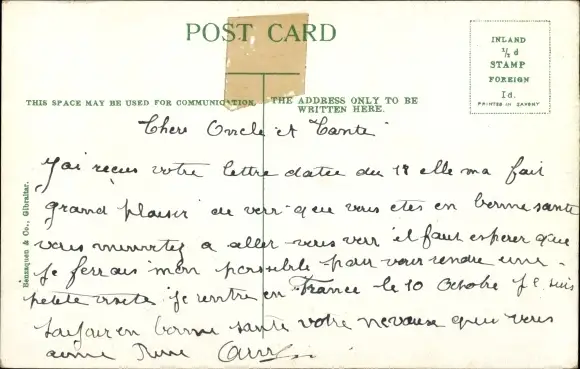 POST CARD
INLAND
½ d
STAMP
FOREIGN
1d.
PRINTED IN SAXONY
THIS SPACE MAY BE USED FOR COMMUNICATION.
THE ADDRESS ONLY TO BE
WRITTEN HERE.
Benzaquen & Co., Gibraltar.
Chere Oncle et Tante
J'ai reçus votre lettre datée du 18 elle ma fait
grand plaisir de voir que vous etes en bonne sante
vous a aller vous voir il faut esperer que
je ferrais mon possible pour vour rendre une
petite visite je rentre en France le 10 Octobre je suis
toujour en bonne sante votre neveaux que vous
aime